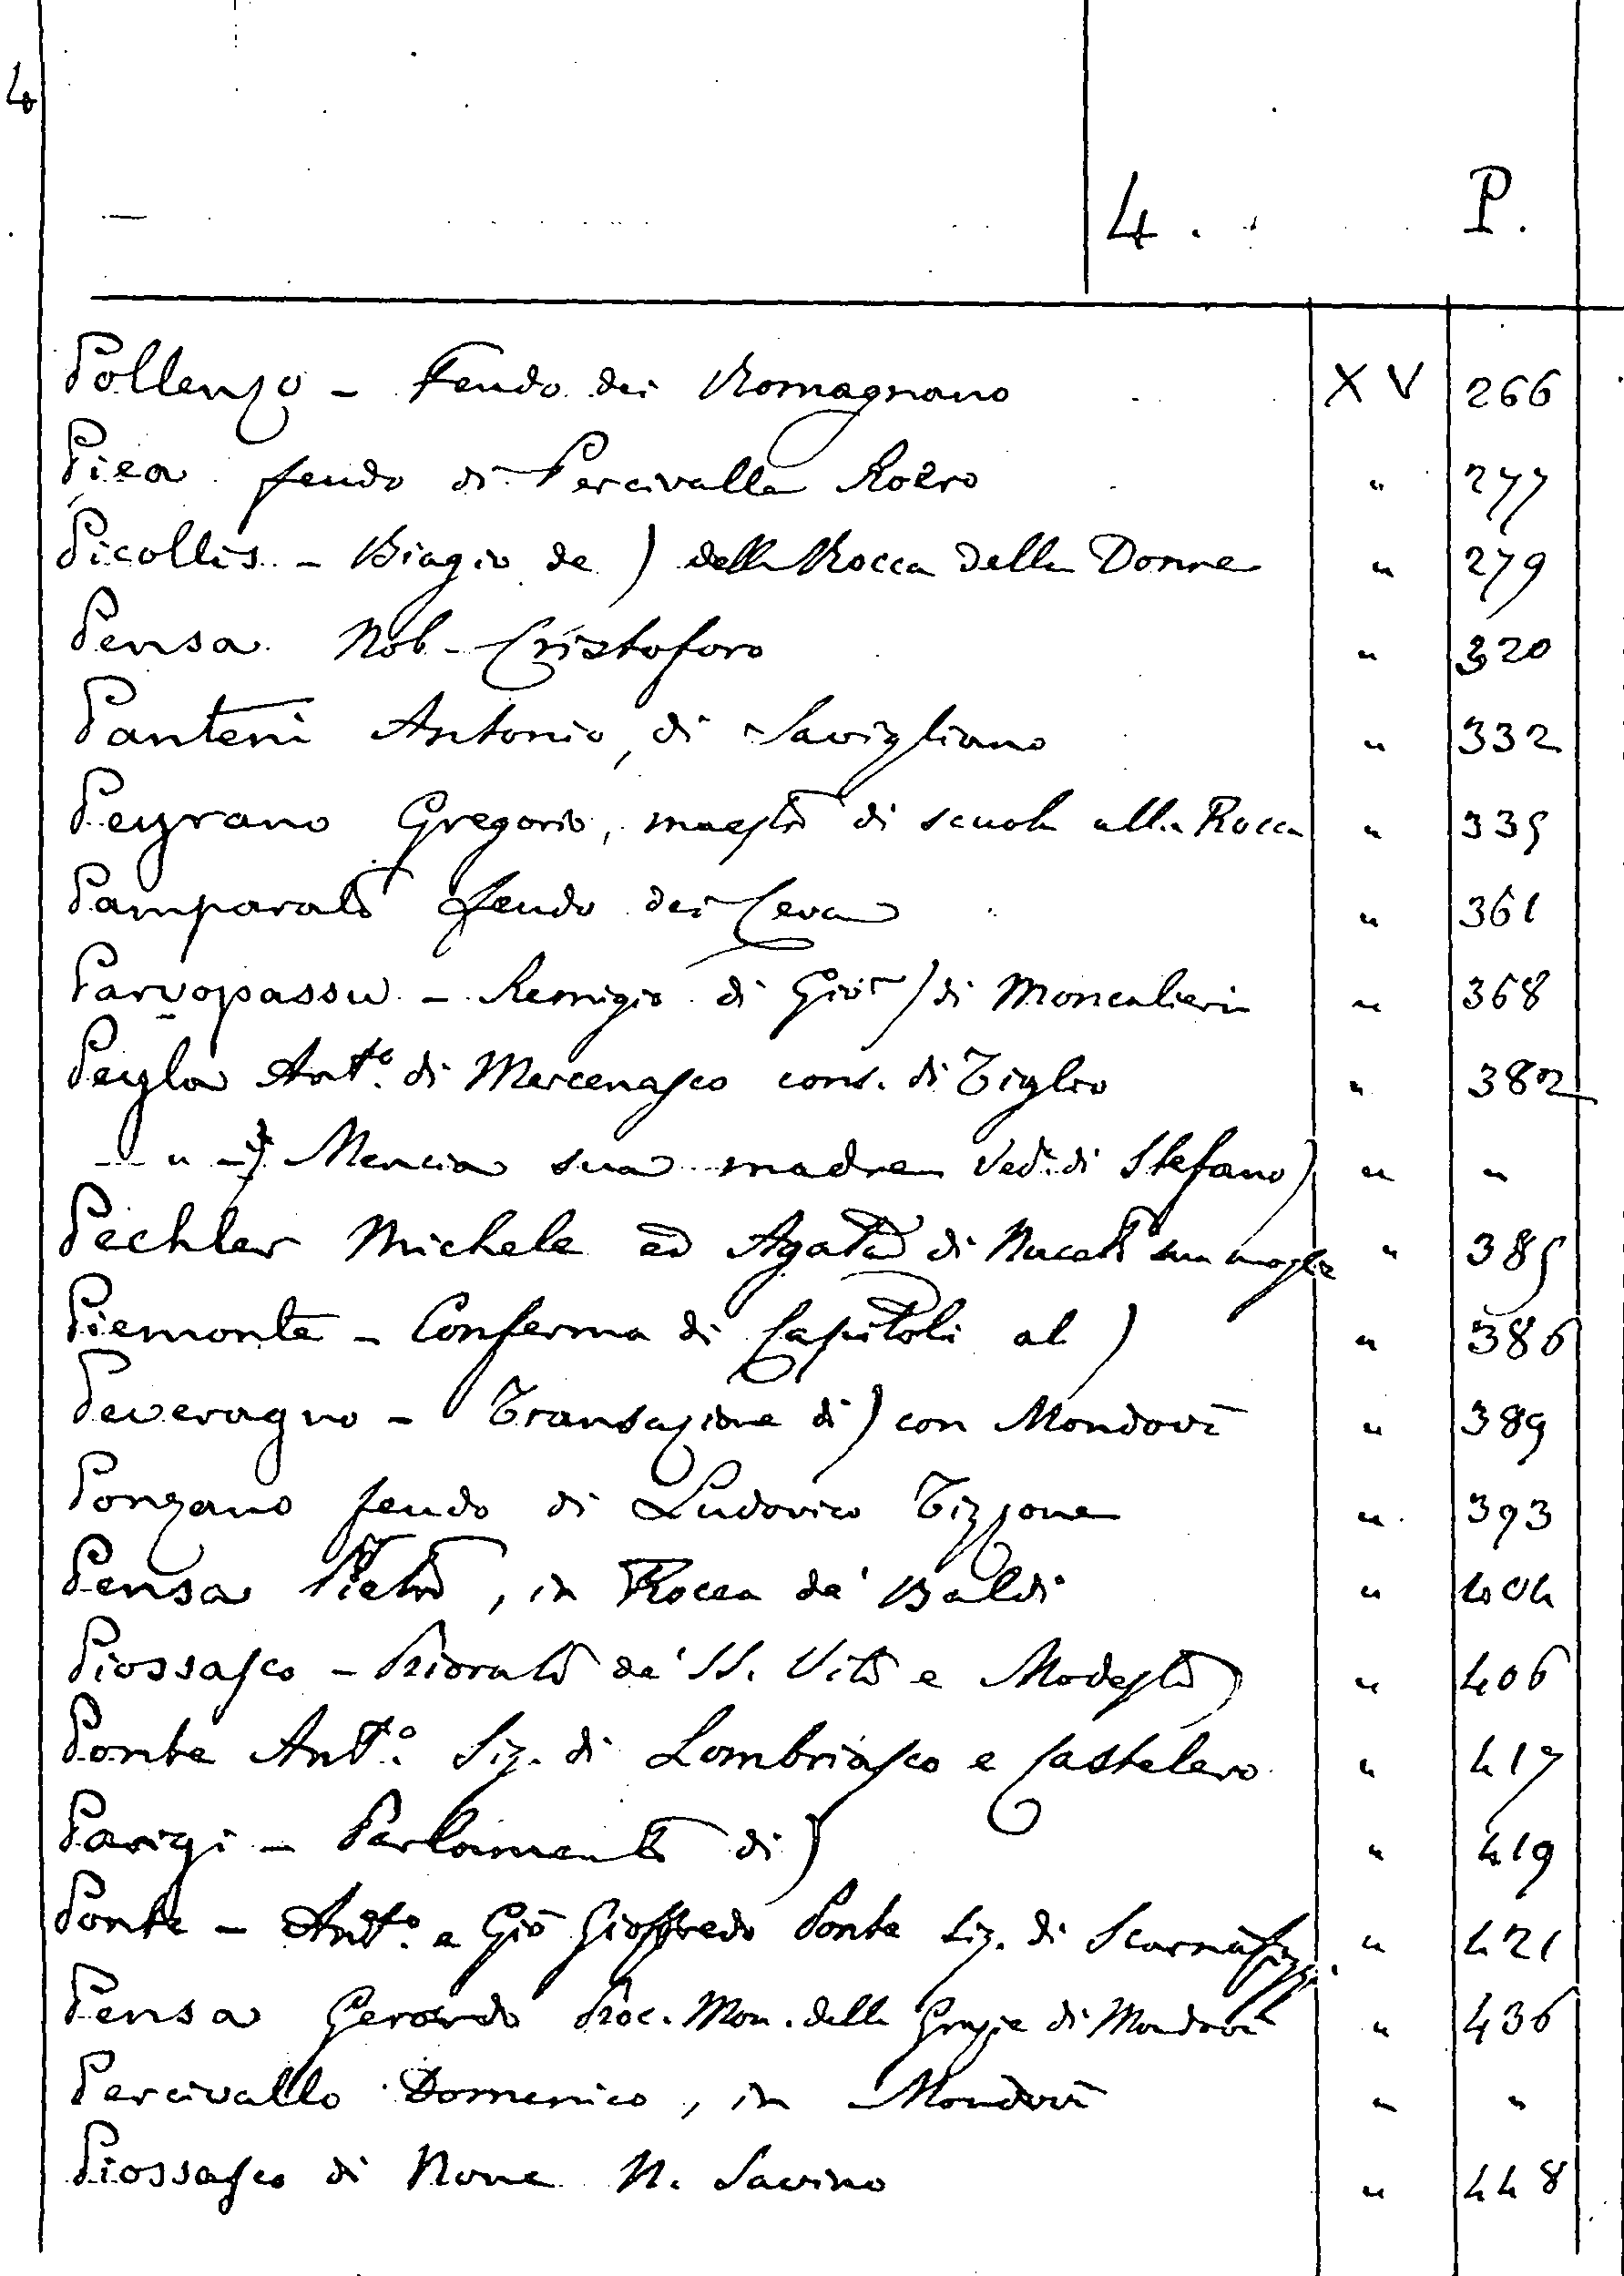 4
4. P.
Pollenzo - Feudo dei Romagnano XV 266
Piea feudo di Percivalle Roero " 277
Picollis - Biagio de) della Rocca delle Donne " 279
Pensa Nob. Cristoforo " 320
Panteri Antonio, di Savigliano " 332
Peyrano Gregorio, maestro di scuola alla Rocca " 335
Pamparato feudo dei Ceva " 361
Parvopassu - Remigio di Giō) di Moncalieri " 368
Peyla Antº. di Mercenasco cons. di Tiglio " 382
" - Mencia sua madre Ved. di Stefano) " "
Pechler Michele ed Agata di Nuceto sua moglie " 385
Piemonte - Conferma di Capitoli al) " 386
Peveragno - Transazione di) con Mondovì " 389
Ponzano feudo di Ludovico Tizzone " 393
Pensa Pietro, in Rocca de' Baldi " 404
Piossasco - Priorato de' SS. Vito e Modesto) " 406
Ponte Antº. Sig. di Lombriasco e Castelero " 417
Parigi - Parlamento di) " 419
Ponte - Antº. e Giō Gioffredo Ponte Sig. di Scarnafiggi " 421
Pensa Gerardo Proc. Mon. delle Grazie di Mondovì " 436
Percivallo Domenico, in Mondovì " "
Piossasco di None N. Savino " 448